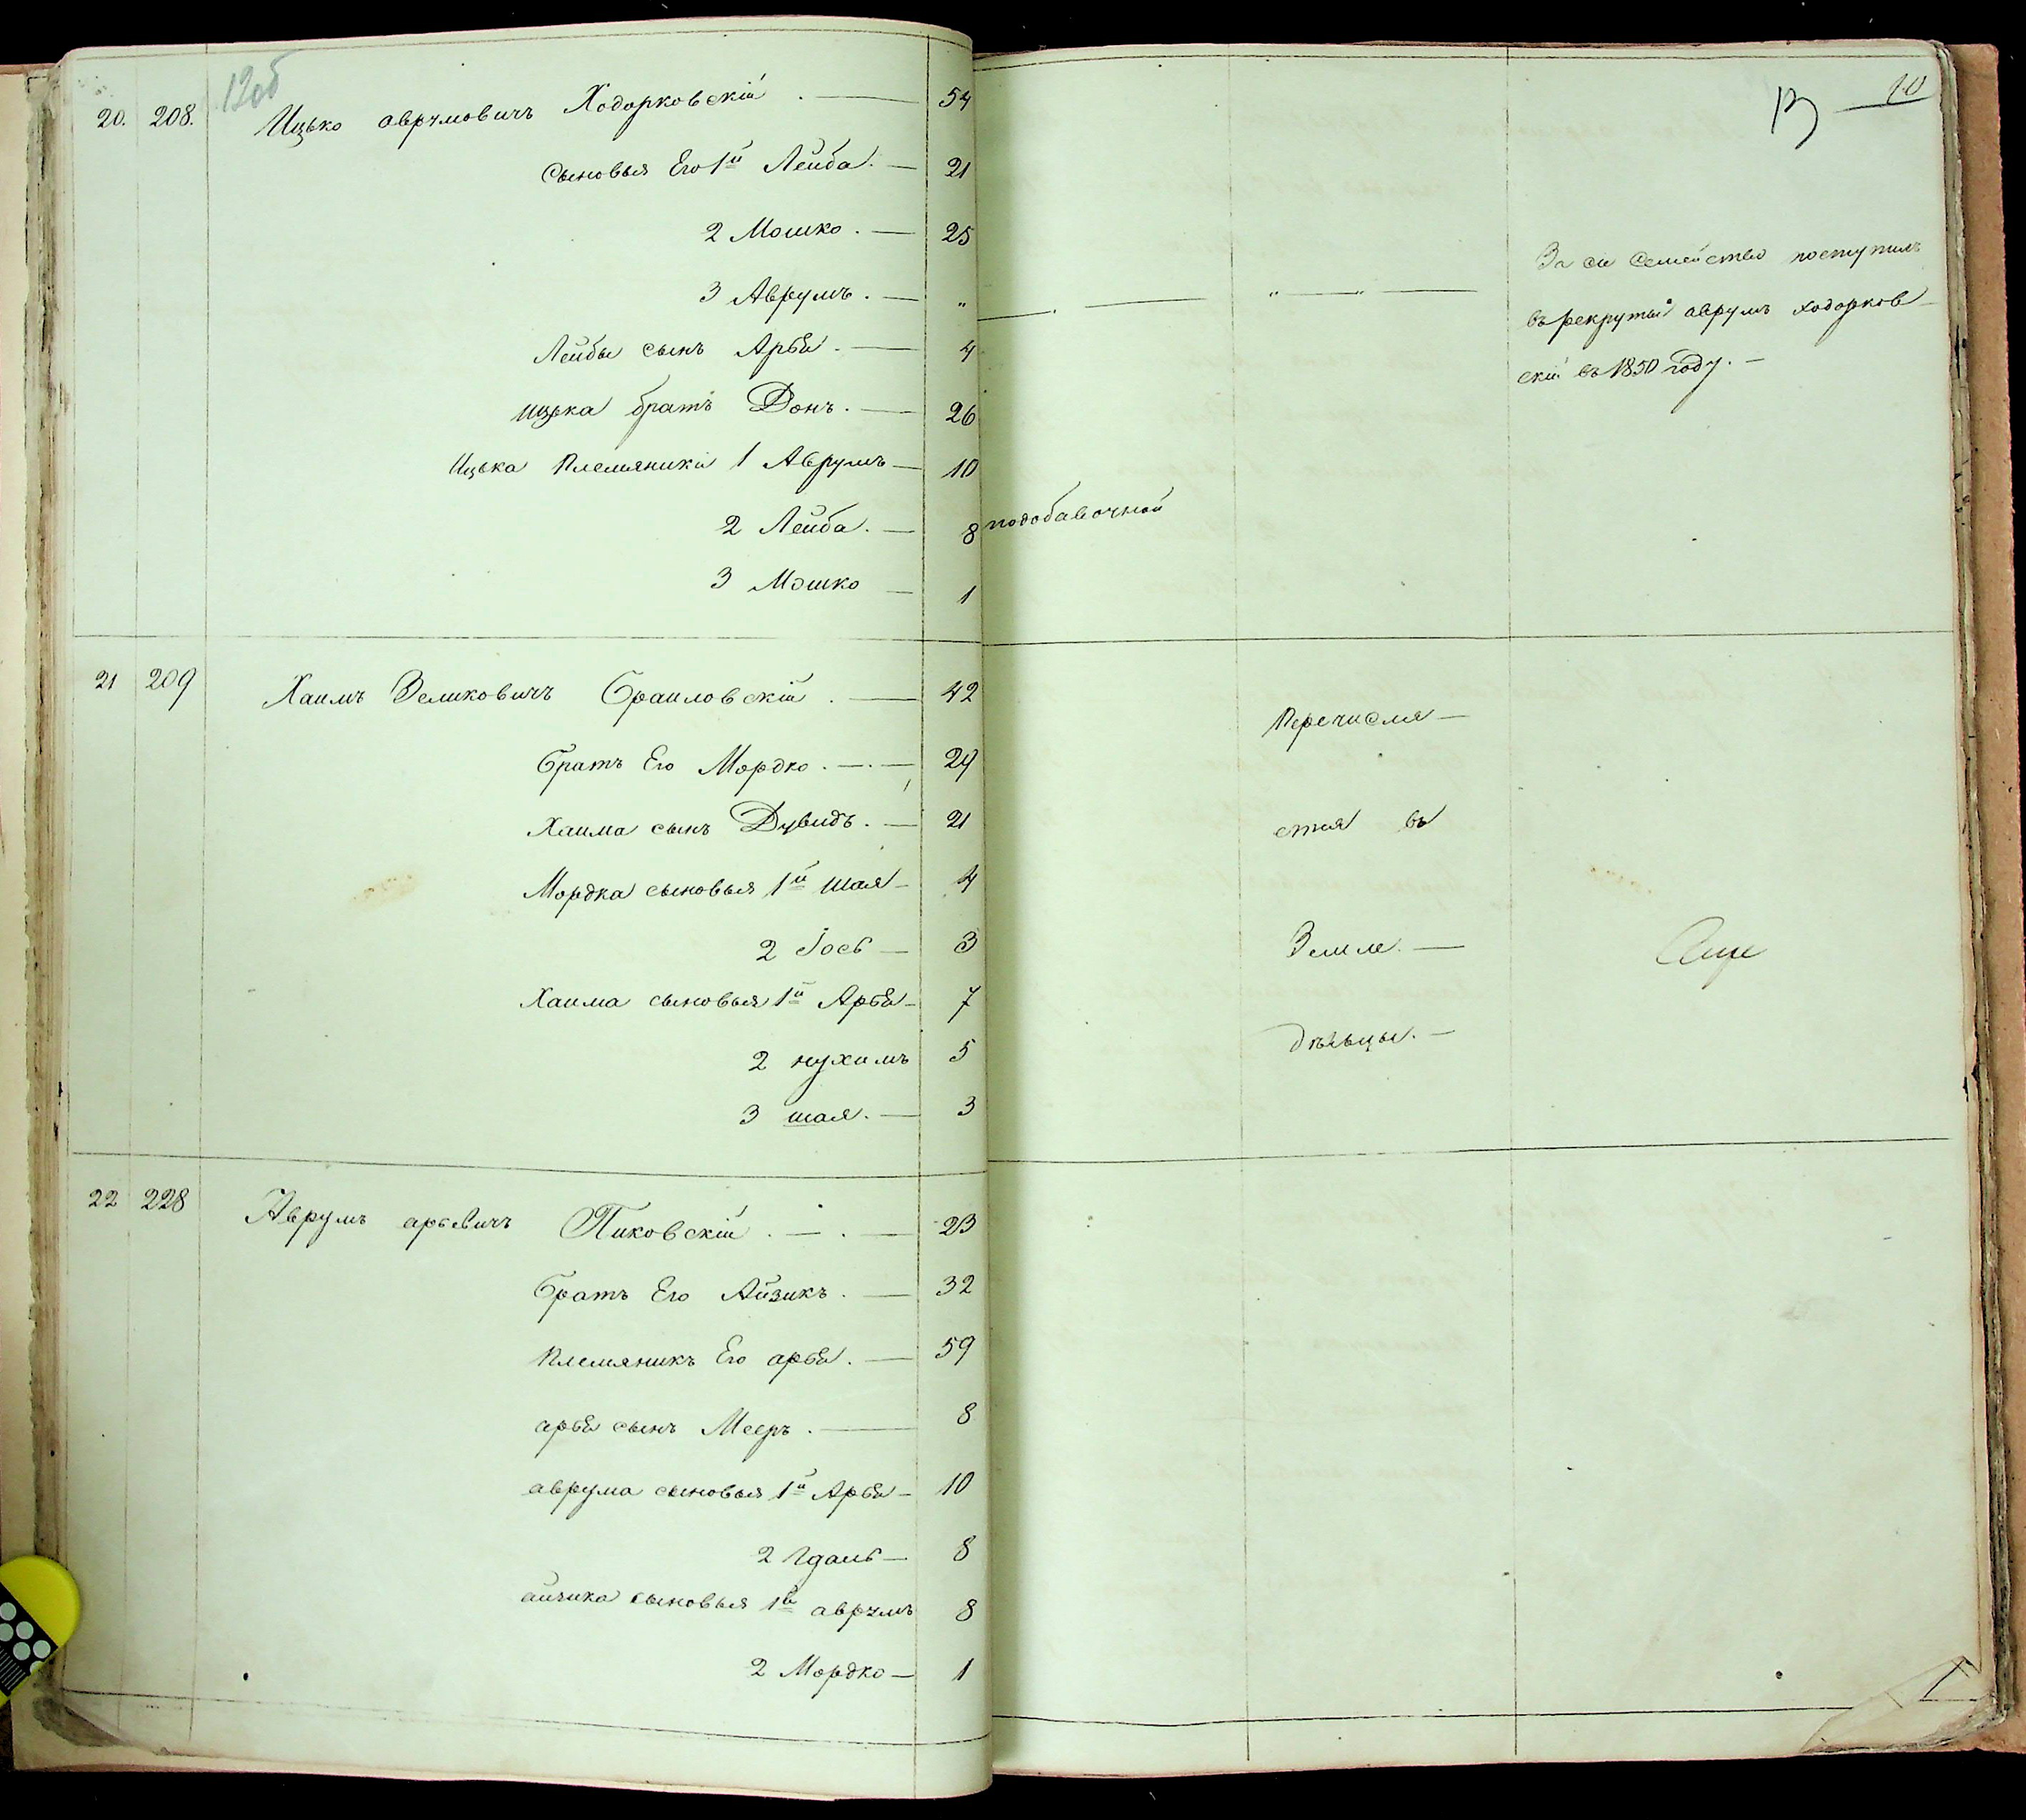 12об
20. 208. Ицько аврумовичъ Ходорковскій . — 54
сыновья Его 1й Лейба. — 21
2 Мошко. — 25
3 Аврумъ. — „
Лейбы сынъ Арья. — 4
ицька братъ Донъ. — 26
Ицька Племяники 1 Аврумъ — 10
2 Лейба. — 8
3 Мошко — 1
21 209 Хаимъ Зеликовичъ Браиловскій . — 42
Братъ Его Мордко. — 24
Хаима сынъ Дувидъ. — 21
Мордка сыновья 1й шая — 4
2 Іось — 3
Хаима сыновья 1й Арья — 7
2 нухимъ 5
3 шая. — 3
22 228 Аврумъ арьевичъ Пиковскій . — . — 23
Братъ Его Айзикъ. — 32
Племяникъ Его арья. — 59
арья сынъ Мееръ. — 8
аврума сыновья 1й Арья — 10
2 — 8
айзика сыновья 1й аврумъ 8
2 Мордко — 1
13 10
За си Семейство поступилъ
въ рекруты аврумъ ходорков
скій въ 1850 году. —
подобавочной
Перечисля —
ется въ
Земле. —
дѣльцы. —